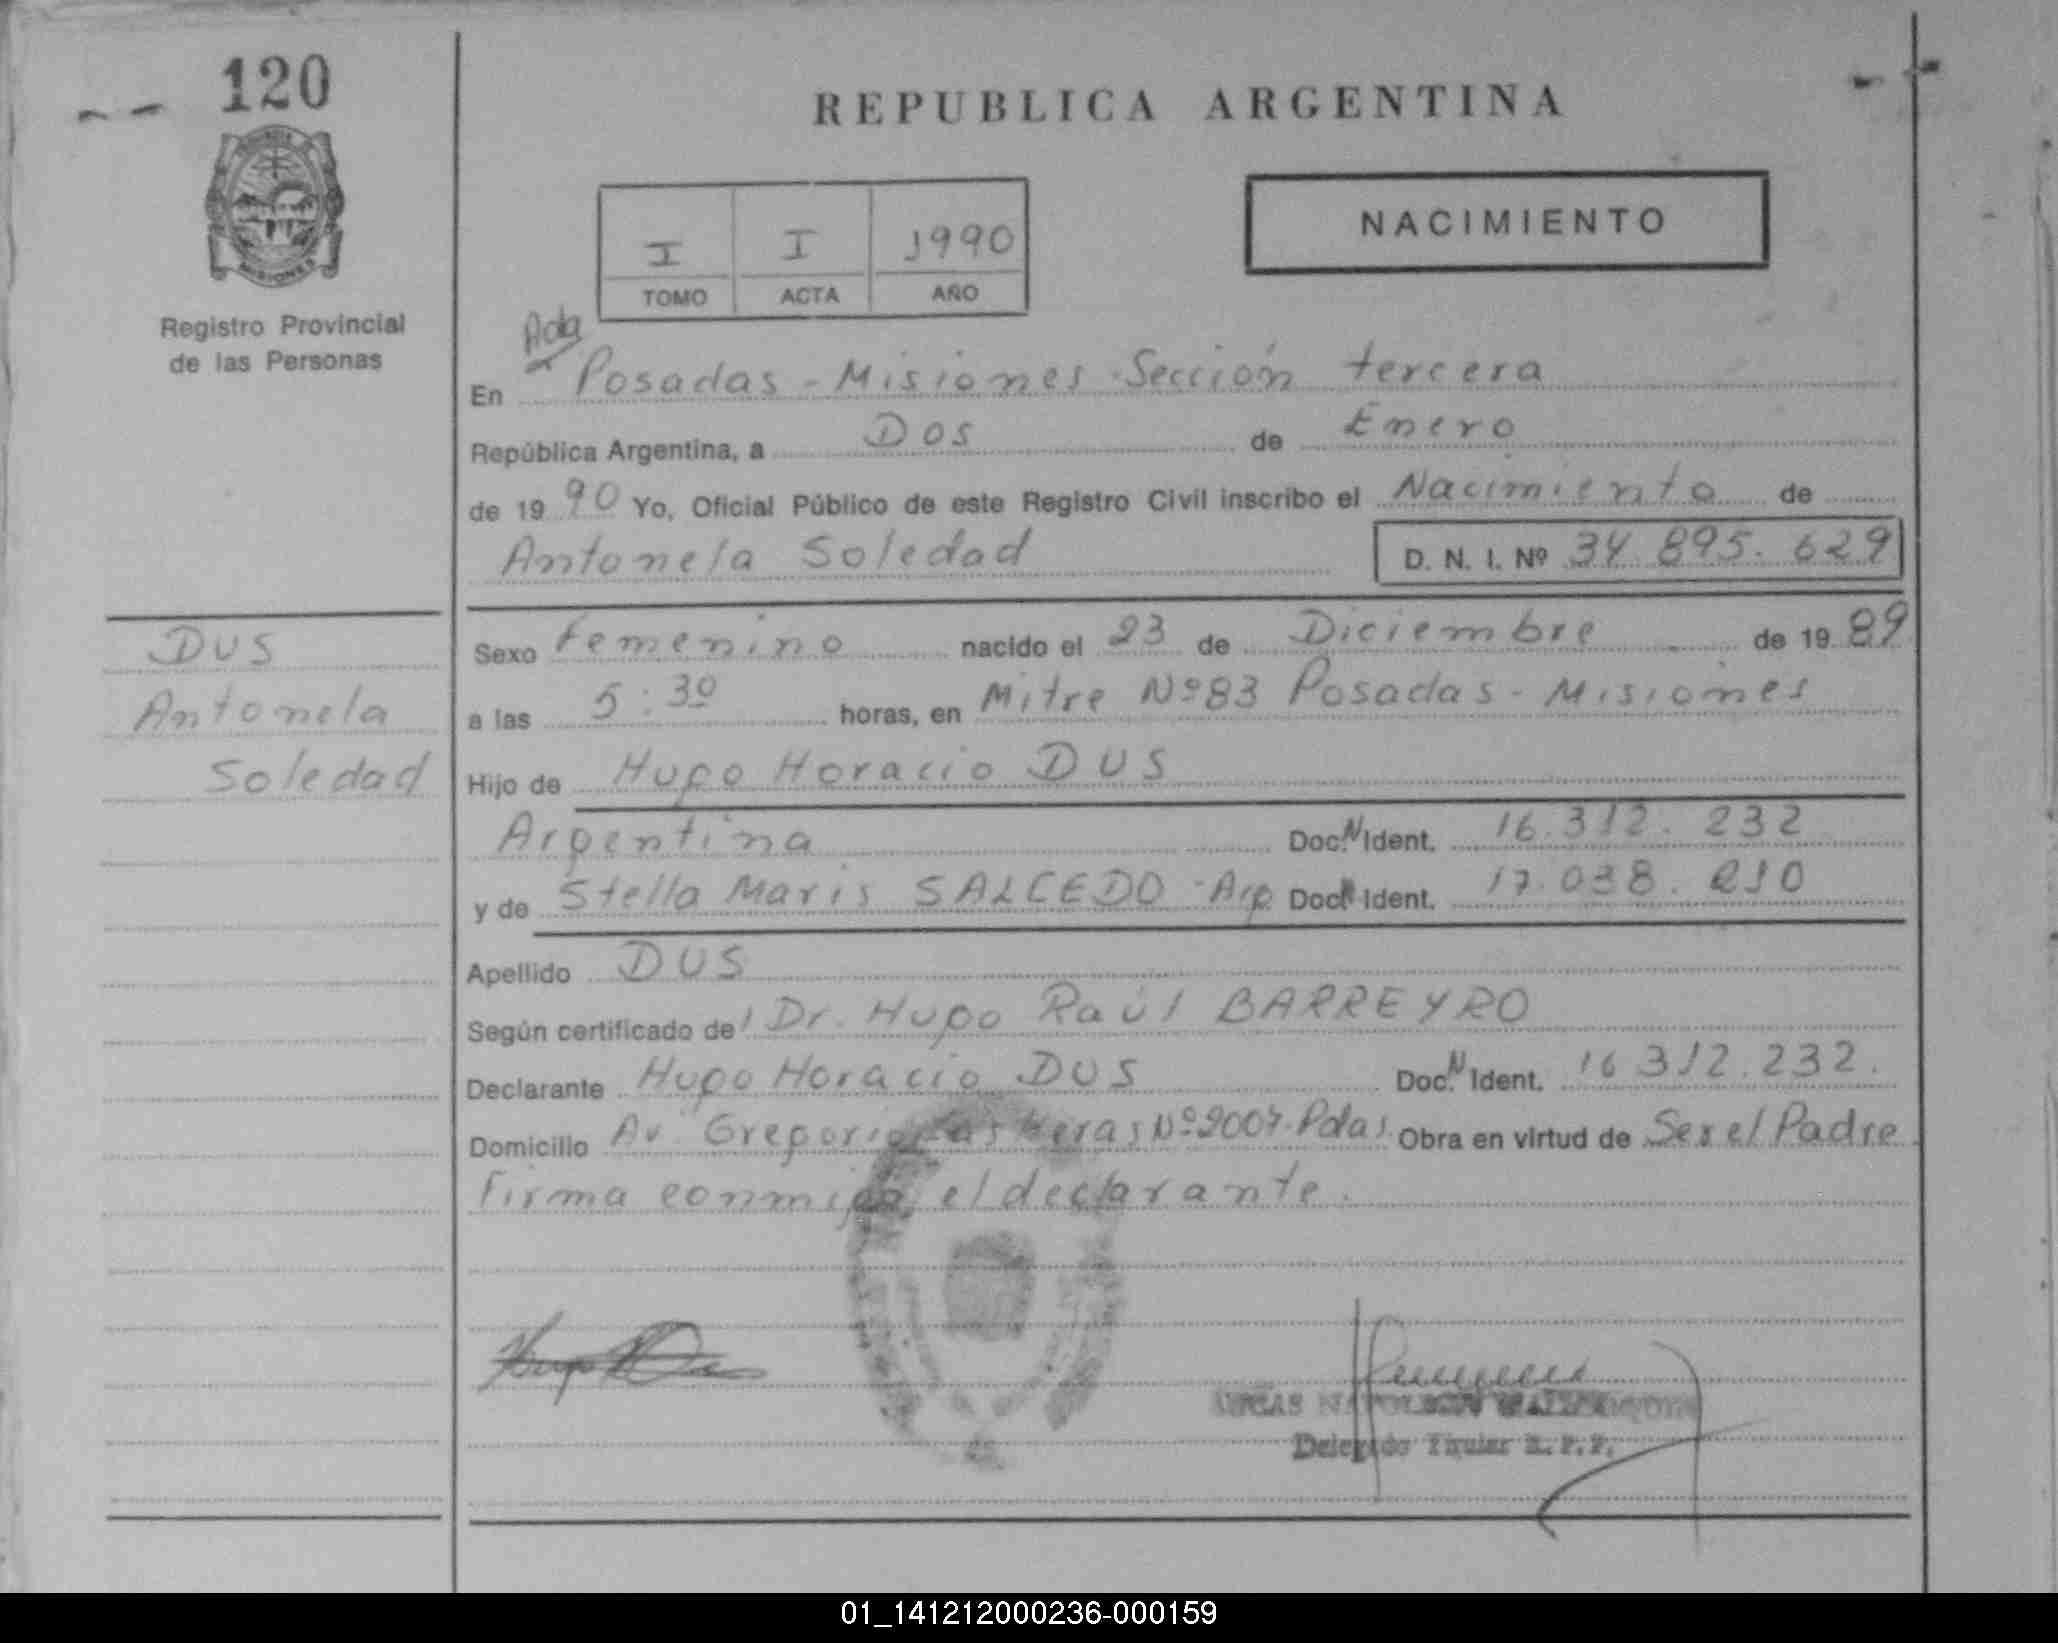 120
MISIONES
Registro Provincial
de las Personas
REPUBLICA ARGENTINA
I I 1990
TOMO ACTA AÑO
NACIMIENTO
En Posadas - Misiones - Sección tercera
República Argentina, a Dos de Enero
de 19 90 Yo, Oficial Público de este Registro Civil inscribo el Nacimiento de
Antonela Soledad D. N. I. Nº 34.895.629
DUS
Antonela
Soledad
Sexo Femenino nacido el 23 de Diciembre de 19 89
a las 5:30 horas, en Mitre Nº 83 Posadas - Misiones
Hijo de Hugo Horacio DUS
Argentina Doc. N Ident. 16.312.232
y de Stella Maris SALCEDO - Arg. Doc. Ident. 17.038.210
Apellido DUS
Según certificado del Dr. Hugo Raúl BARREYRO
Declarante Hugo Horacio DUS Doc. N Ident. 16 312.232.
Domicilio Av. Gregorio Las Heras Nº 2007 - Pdas Obra en virtud de Ser el Padre
Firma conmigo el declarante.
Delegado Titular R. P. P.
01_141212000236-000159